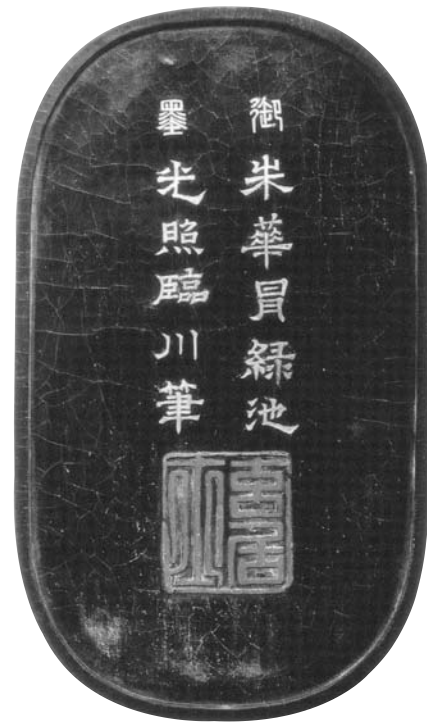 御朱華冐緑池
墨光照臨川筆